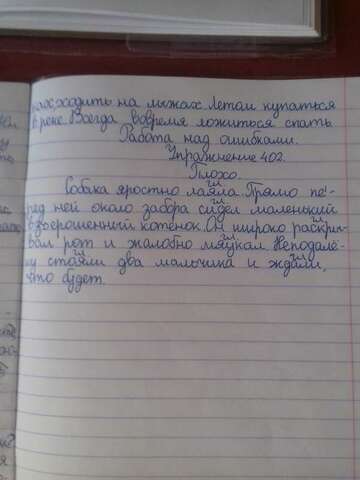 ходить на лыжах. Летом купаться
в реке. Всегда вовремя ложиться спать.
Работа над ошибками.
Упражнение 402.
Плохо.
Собака яростно лаяла. Прямо пе-
ред ней около забора сидел маленький
взъерошенный котенок. Он широко раскры-
вал рот и жалобно мяукал. Неподалё-
ку стояли два мальчика и ждали,
что будет.